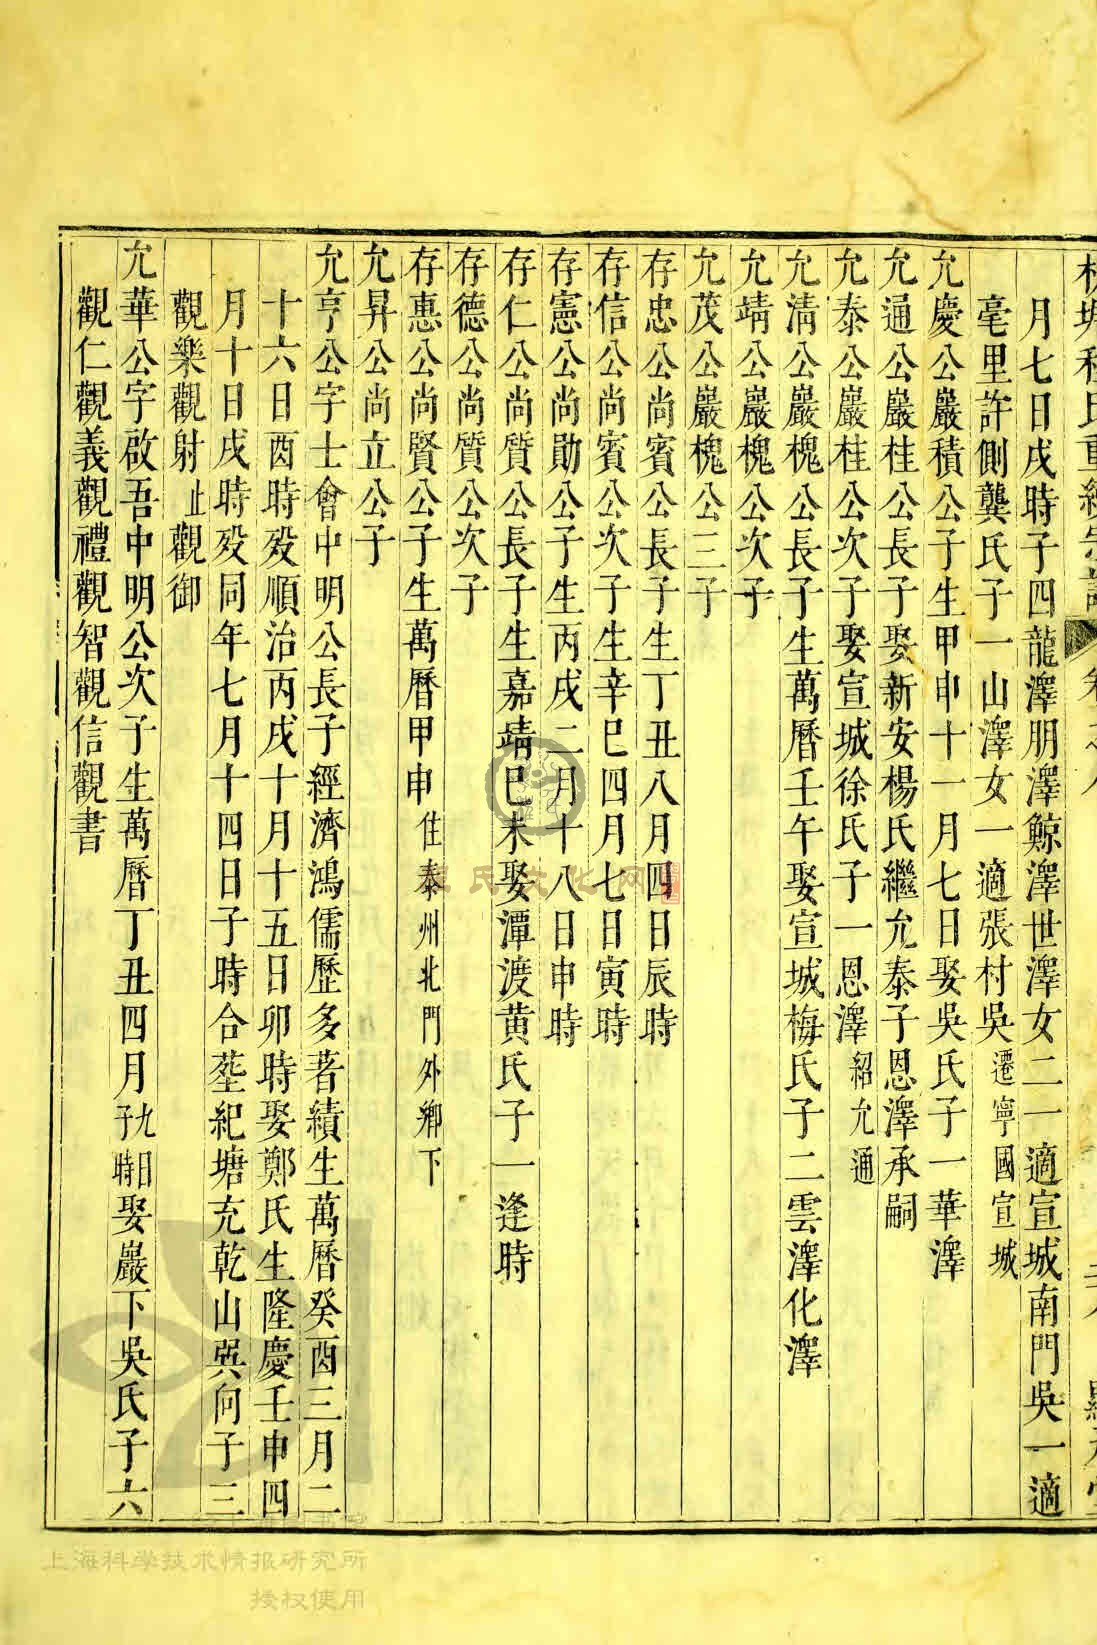 程氏重
月七日戌時子四龍澤朋澤鯨澤世澤女二一適宣城南門吳一適
亳里許側龔氏子一山澤女一適張村吳遷寧國宣城
允慶公巖積公子生甲申十一月七日娶吳氏子一華澤
允通公巖桂公長子娶新安楊氏繼允泰子恩澤承嗣
允泰公巖桂公次子娶宣城徐氏子一恩澤紹允通
允清公巖槐公長子生萬曆壬午娶宣城梅氏子二雲澤化澤
允靖公巖槐公次子
允茂公巖槐公三子
存忠公尚賓公長子生丁丑八月四日辰時
存信公尚賓公次子生辛巳四月七日寅時
存憲公尚勛公子生丙戌二月十八日申時
存仁公尚質公長子生嘉靖巳未娶潭渡黄氏子一逢時
存德公尚質公次子
存惠公尚賢公子生萬曆甲申住泰州北門外鄉下
允昇公尚立公子
允亨公字士會中明公長子經濟鴻儒歷多著績生萬曆癸酉三月二
十六日酉時歿順治丙戌十月十五日卯時娶鄭氏生隆慶壬申四
月十日戌時歿同年七月十四日子時合塟紀塘充乾山巽向子三
觀樂觀射止觀御
允華公字啟吾中明公次子生萬曆丁丑四月九日子時娶巖下吳氏子六
觀仁觀義觀禮觀智觀信觀書
氏文化网
上海科学技术情报研究所
授权使用